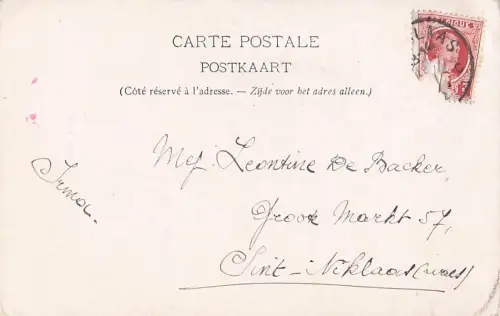 CARTE POSTALE
POSTKAART
(Côté réservé à l'adresse. — Zijde voor het adres alleen.)
Mej. Leontine De Backer,
Groote Markt 57,
Sint-Niklaas (waes)
Irma.